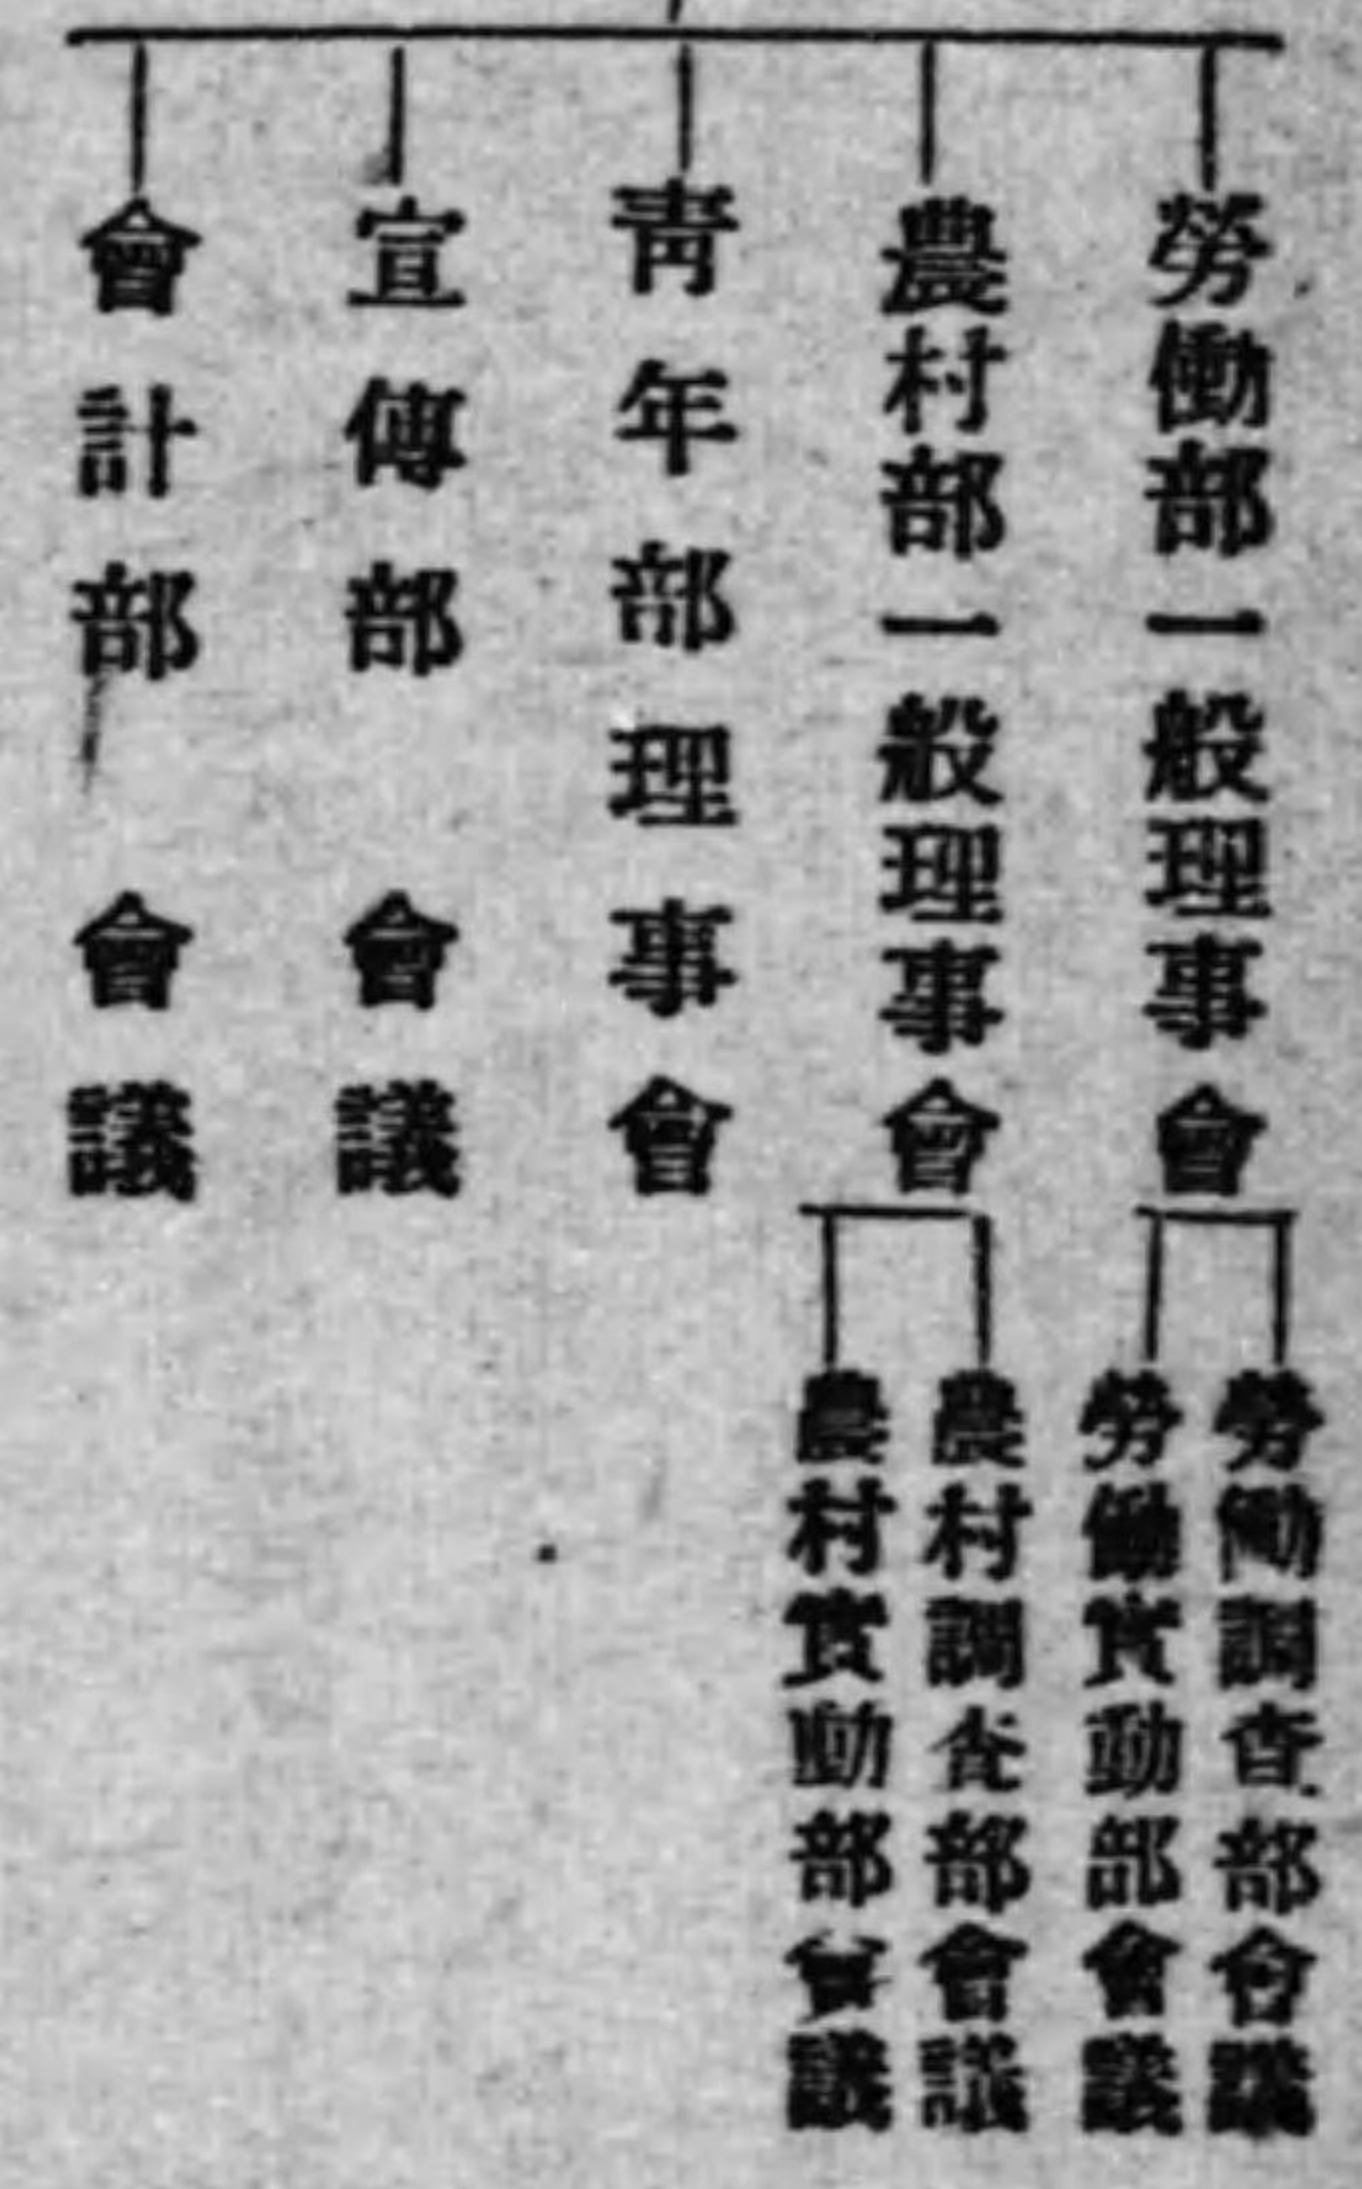 勞働部一般理事會
勞働調査部會議
勞働實動部會議
農村部一般理事會
農村調査部會議
農村實動部會議
靑年部理事會
宣傳部會議
會計部會議